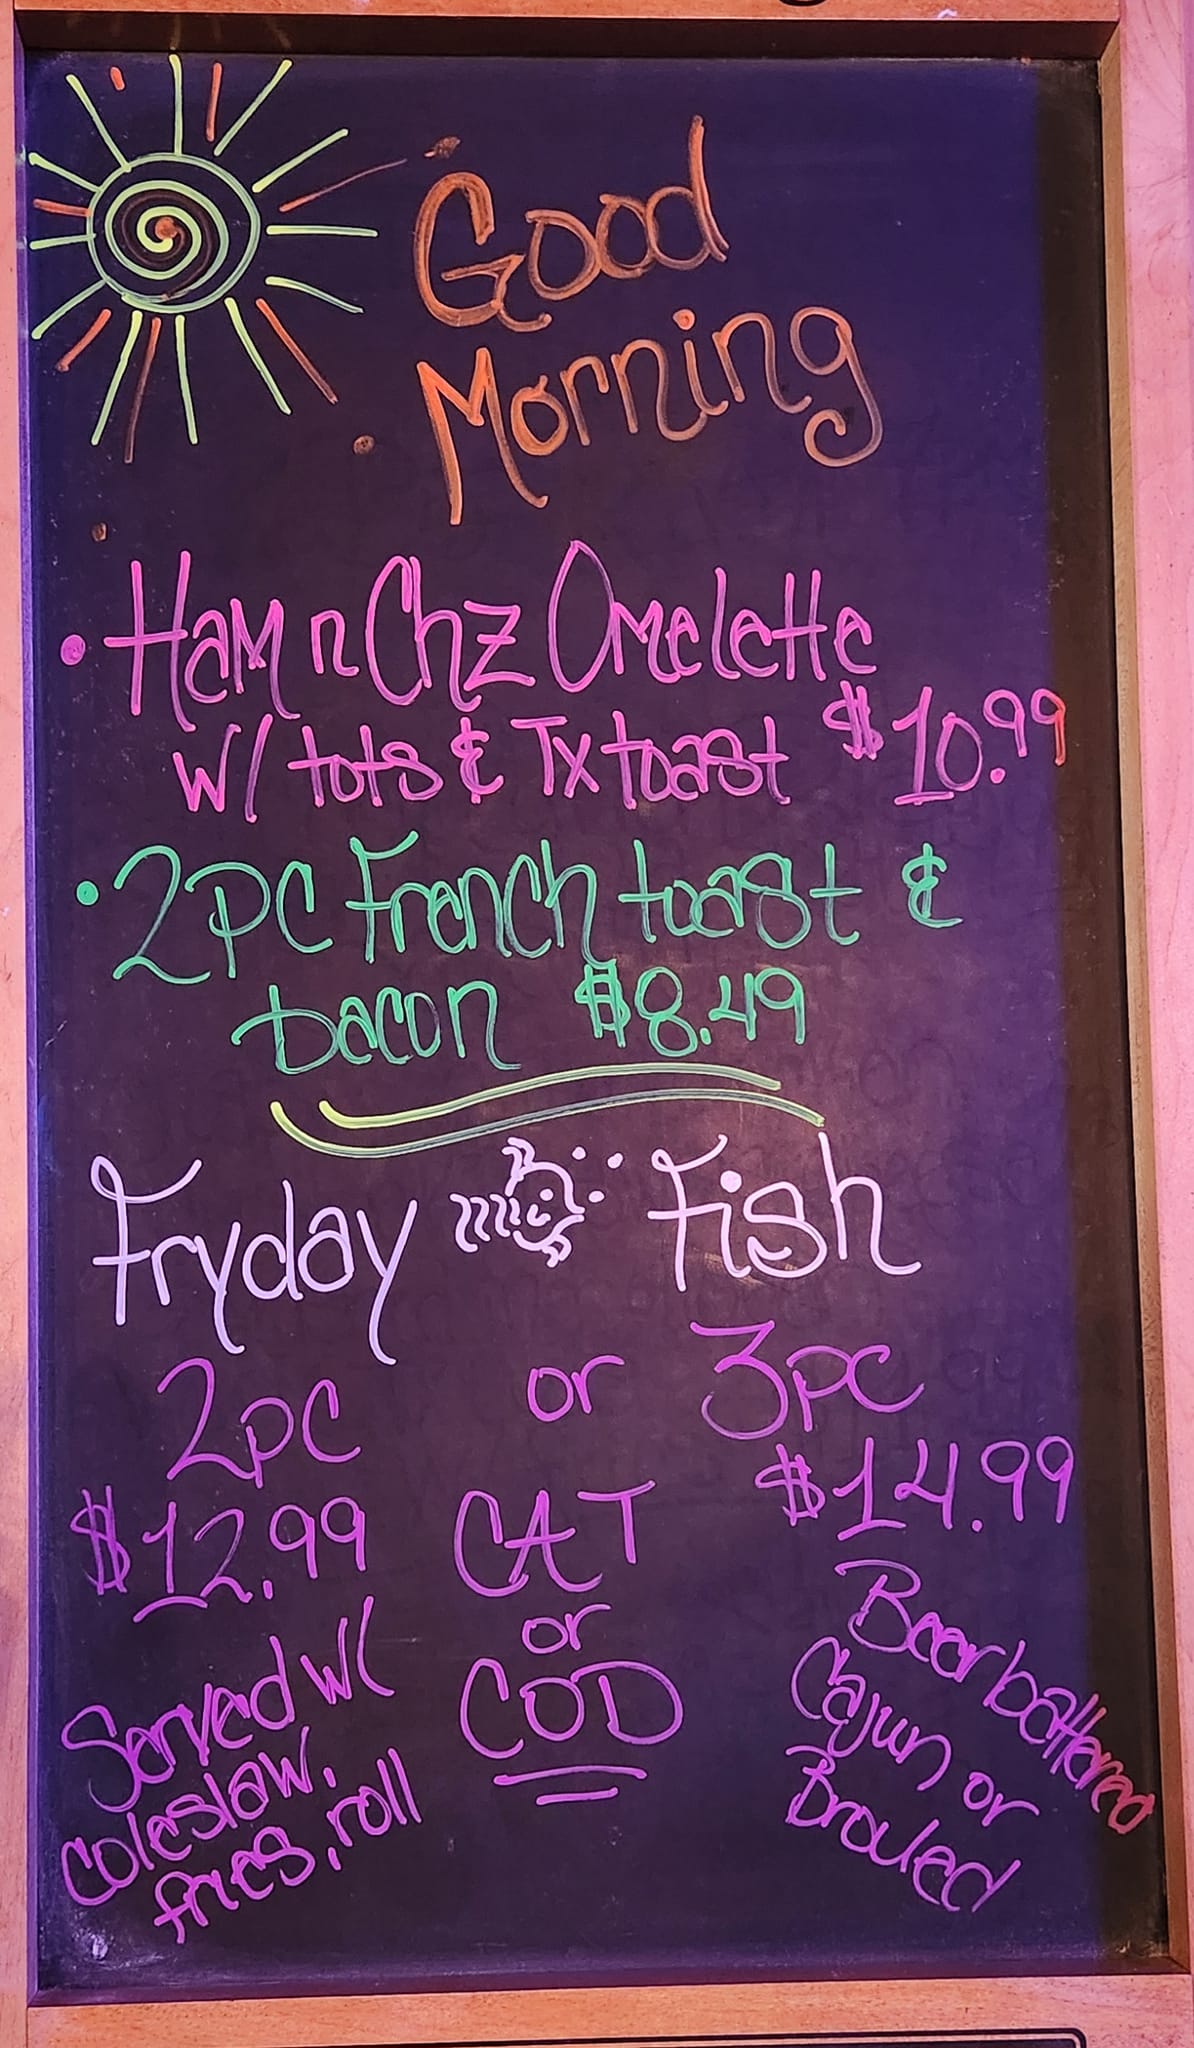 Good
Morning
• Ham n Chz Omelette
w/ tots & Tx toast $10.99
• 2pc French toast &
bacon $8.49
Fryday Fish
2pc or 3pc
$12.99 $14.99
CAT
or
COD
Served w/
coleslaw,
fries, roll
Beer battered
Cajun or
Brouled